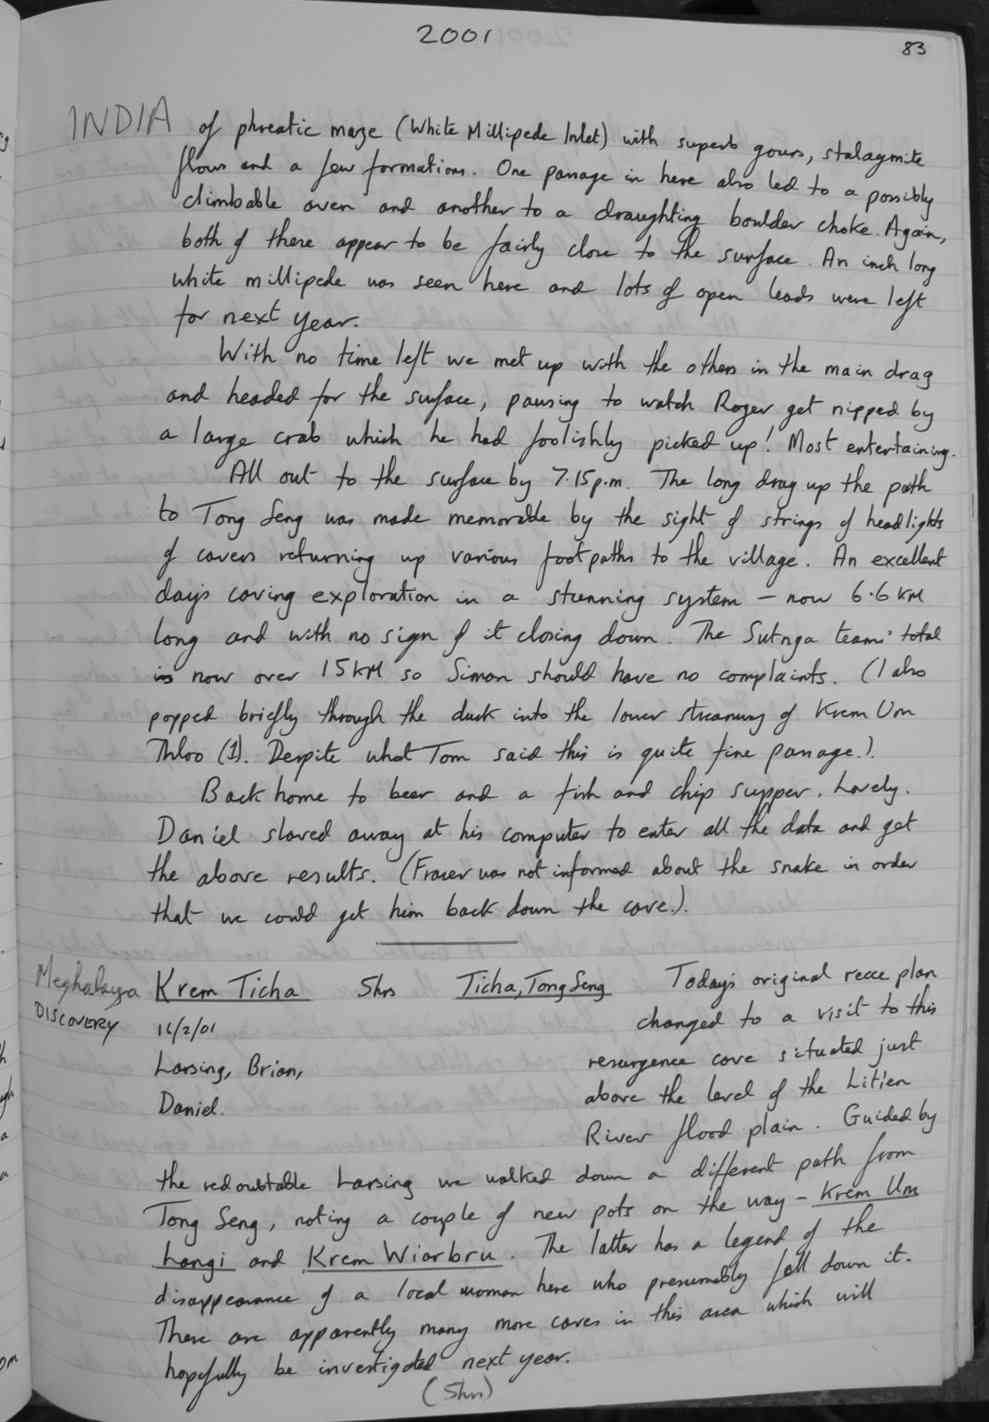 2001
83
INDIA of phreatic maze (White Millipede Inlet) with superb gours, stalagmite
flows and a few formations. One passage in here also led to a possibly
climbable aven and another to a draughting boulder choke. Again,
both of these appear to be fairly close to the surface. An inch long
white millipede was seen here and lots of open leads were left
for next year.
With no time left we met up with the others in the main drag
and headed for the surface, pausing to watch Roger get nipped by
a large crab which he had foolishly picked up! Most entertaining.
All out to the surface by 7.15p.m. The long drag up the path
to Tong Seng was made memorable by the sight of strings of headlights
of cavers returning up various footpaths to the village. An excellent
days caving exploration in a stunning system - now 6.6 KM
long and with no sign of it closing down. The Sutnga teams' total
is now over 15KM so Simon should have no complaints. (I also
popped briefly through the duck into the lower streamway of Krem Um
Thloo (1). Despite what Tom said this is quite fine passage.).
Back home to beer and a fish and chip supper. Lovely.
Daniel slaved away at his computer to enter all the data and get
the above results. (Fraser was not informed about the snake in order
that we could get him back down the cave.).
Meghalaya
DISCOVERY
Krem Ticha 5hrs Ticha, Tong Seng Today's original recce plan
16/2/01 changed to a visit to this
Larsing, Brian, resurgence cave situated just
Daniel. above the level of the Litien
River flood plain. Guided by
the redoubtable Larsing we walked down a different path from
Tong Seng, noting a couple of new pots on the way - Krem Um
Langi and Krem Wiarbru. The latter has a legend of the
disappearance of a local woman here who presumably fell down it.
There are apparently many more caves in this area which will
hopefully be investigated next year.
(5hrs)